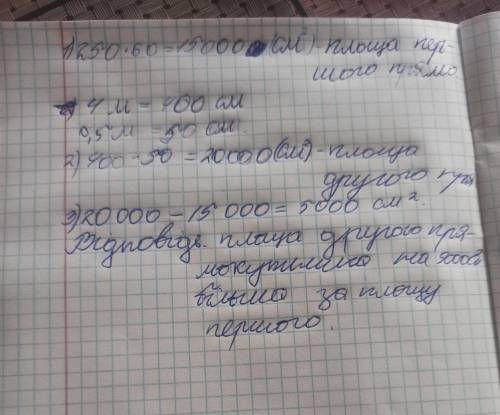 1) 250·60=15000 (см²) - площа пер-
шого прямо
4 м = 400 см
0,5 м = 50 см.
2) 400·50 = 20000 (см²) - площа
другого пря
3) 20 000 - 15 000 = 5000 см².
Відповідь: площа другого пря-
мокутника на 5000
більша за площу
першого.